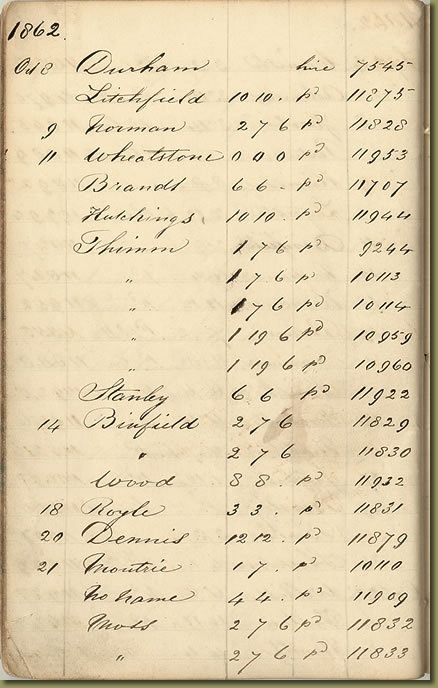 1862.
Oct 8 Durham hire 7545
Litchfield 10 10 . pd 11875
9 Norman 2 7 6 pd 11828
11 Wheatstone 0 0 0 pd 11953
Brandt 6 6 - pd 11707
Hutchings, 10 10 . pd 11944
Thimm 1 7 6 pd 9244
" 1 7 6 pd 10113
" 1 7 6 pd 10114
" 1 19 6 pd 10959
" 1 19 6 pd 10960
Stanley 6 6 pd 11922
14 Binfield 2 7 6 11829
" 2 7 6 11830
Wood 8 8 . pd 11932
18 Royle 3 3 . pd 11831
20 Dennis 12 12 . pd 11879
21 Moutrie 1 7 . pd 10110
No name 4 4 . pd 11909
Moss 2 7 6 pd 11832
" 2 7 6 pd 11833